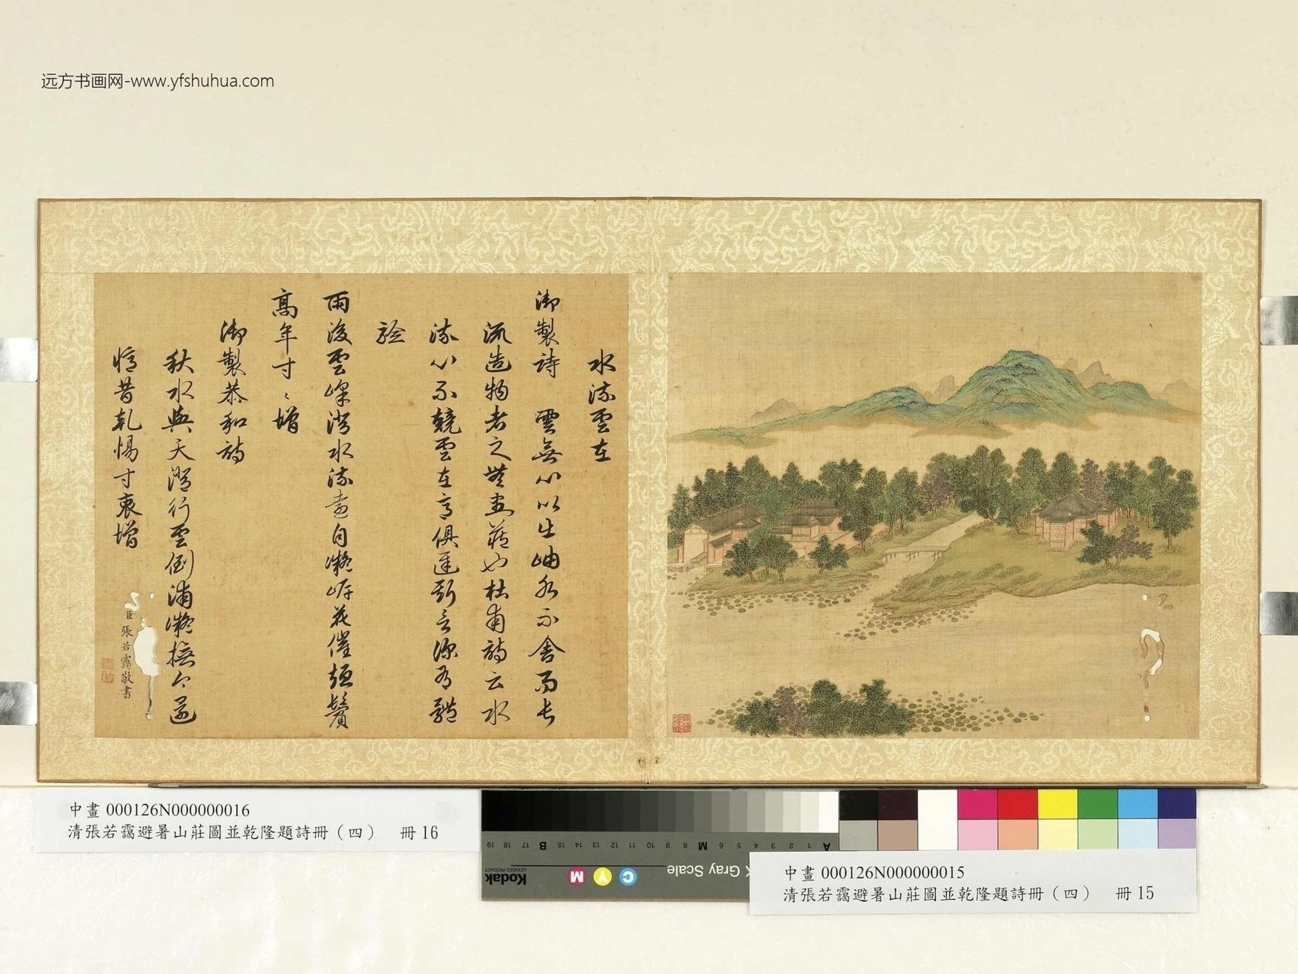 远方书画网-www.yfshuhua.com
水流雲在
御製詩 雲無心以出岫水不舍而長
流造物者之無盡藏也杜甫詩云水
流心不競雲在意俱遲斯言深有體
驗
雨後雲峰澄水流遠自凝岸花催短鬢
高年寸寸增
御製恭和詩
秋水與天澄行雲倒浦凝撫今還
憶昔乾惕寸衷增
臣張若靄敬書
中畫 000126N000000016
清張若靄避暑山莊圖並乾隆題詩冊（四） 冊 16
中畫 000126N000000015
清張若靄避暑山莊圖並乾隆題詩冊（四） 冊 15
A 1 2 3 4 5 6 M 8 9 10 11 12 13 14 15 B 17 18 19
Gray Scale
C Y M
Kodak